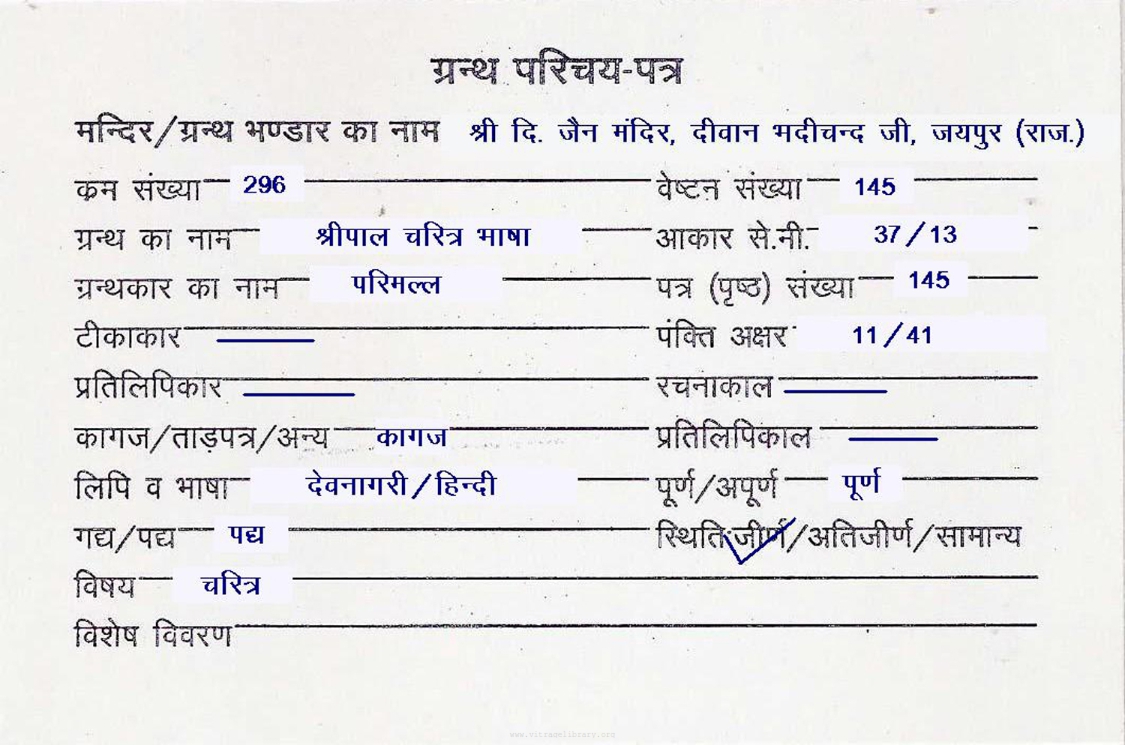 ग्रन्थ परिचय-पत्र
मन्दिर/ग्रन्थ भण्डार का नाम श्री दि. जैन मंदिर, दीवान भदीचन्द जी, जयपुर (राज.)
क्रम संख्या 296 वेष्टन संख्या 145
ग्रन्थ का नाम श्रीपाल चरित्र भाषा आकार से.मी. 37/13
ग्रन्थकार का नाम परिमल्ल पत्र (पृष्ठ) संख्या 145
टीकाकार — पंक्ति अक्षर 11/41
प्रतिलिपिकार — रचनाकाल —
कागज/ताड़पत्र/अन्य कागज प्रतिलिपिकाल —
लिपि व भाषा देवनागरी/हिन्दी पूर्ण/अपूर्ण पूर्ण
गद्य/पद्य पद्य स्थिति जीर्ण/अतिजीर्ण/सामान्य
विषय चरित्र
विशेष विवरण